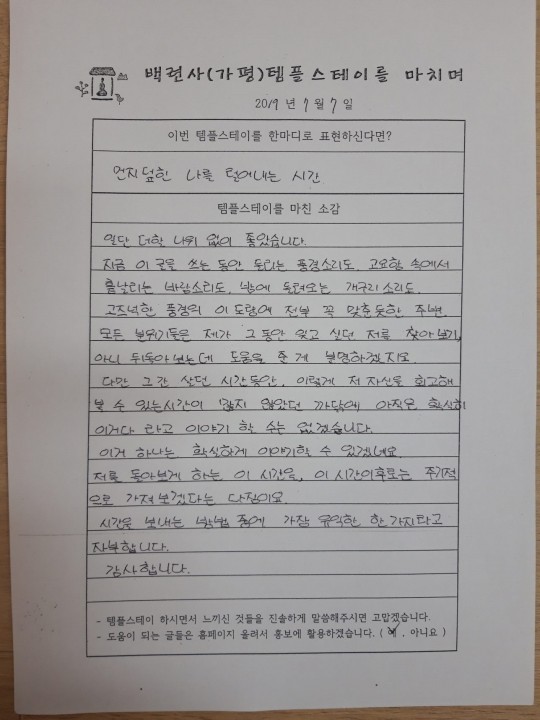 백련사(가평)템플스테이를 마치며
2019 년 7 월 7 일
이번 템플스테이를 한마디로 표현하신다면?
먼지덮힌 나를 털어내는 시간
템플스테이를 마친 소감
일단 더할 나위 없이 좋았습니다.
지금 이 글을 쓰는 동안 들리는 풍경소리도, 고요함 속에서
흩날리는 바람소리도, 밤에 들려오는 개구리 소리도.
고즈넉한 풍경의 이 도량에 전부 꼭 맞춘듯한 주변.
모든 분위기들은 제가 그동안 잊고 살던 저를 찾아보기,
아니 뒤돌아보는데 도움을 준 게 분명하겠지요.
다만 그간 살던 시간동안, 이렇게 저 자신을 회고해
볼 수 있는시간이 많지 않았던 까닭에 아직은 확실히
이거다 라고 이야기 할 수는 없겠습니다.
이거 하나는 확실하게 이야기할 수 있겠네요.
저를 돌아보게 하는 이 시간을, 이 시간이후로는 주기적
으로 가져보겠다는 다짐이요.
시간을 보내는 방법 중에 가장 유익한 한 가지라고
자부합니다.
감사합니다.
- 템플스테이 하시면서 느끼신 것들을 진솔하게 말씀해주시면 고맙겠습니다.
- 도움이 되는 글들은 홈페이지 올려서 홍보에 활용하겠습니다. ( 예 , 아니요 )